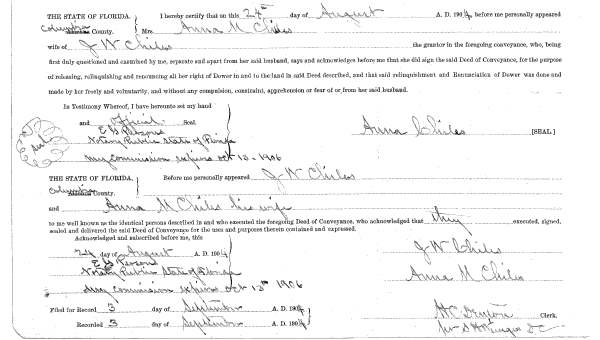 THE STATE OF FLORIDA. I hereby certify that on this 24th day of August A. D. 1904 before me personally appeared
Columbia County. Mrs. Anna M Chiles
wife of J W Chiles the grantor in the foregoing conveyance, who, being
first duly questioned and examined by me, separate and apart from her said husband, says and acknowledges before me that she did sign the said Deed of Conveyance, for the purpose
of releasing, relinquishing and renouncing all her right of Dower in and to the land in said Deed described, and that said relinquishment and Renunciation of Dower was done and
made by her freely and voluntarily, and without any compulsion, constraint, apprehension or fear of or from her said husband.
In Testimony Whereof, I have hereunto set my hand
and official Seal
Anna Chiles [SEAL]
Seal
Notary Public State of Florida
My commission expires Oct 13 - 1906
THE STATE OF FLORIDA. Before me personally appeared J W Chiles
Columbia County.
and Anna M Chiles his wife
to me well known as the identical persons described in and who executed the foregoing Deed of Conveyance, who acknowledged that they executed, signed,
sealed and delivered the said Deed of Conveyance for the uses and purposes therein contained and expressed.
Acknowledged and subscribed before me, this
24 day of August A. D. 1904
J W Chiles
Notary Public State of Florida
Anna M Chiles
My commission expires Oct 13th 1906
Filed for Record 3 day of September A. D. 1904
Clerk.
Recorded 3 day of September A. D. 1904
D C